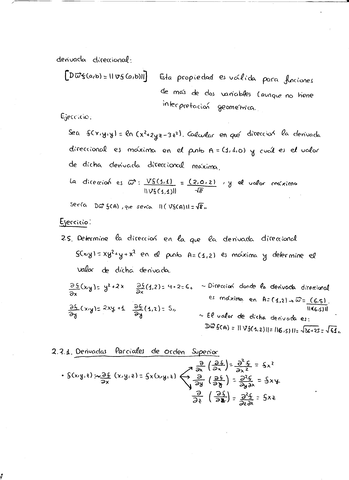 derivada direccional:
[Dw⃗f(a,b) = ||∇f(a,b)||] Esta propiedad es válida para funciones
de más de dos variables (aunque no tiene
interpretación geométrica.
Ejercicio.
Sea f(x,y,z) = ln (x²+2yx-3z²). Calcular en qué dirección la derivada
direccional es máxima en el punto A = (1,1,0) y cuál es el valor
de dicha derivada direccional máxima.
La dirección es w⃗ = ∇f(1,1) / ||∇f(1,1)|| = (2,0,2) / √8, y el valor máximo
sería Dw⃗f(A), que sería ||(∇f(A)|| = √8.
Ejercicio:
25. Determine la dirección en la que la derivada direccional
f(x,y) = xy²+y+x² en el punto A = (1,2) es máxima y determine el
valor de dicha derivada.
∂f/∂x (x,y) = y²+2x ∂f/∂x (1,2) = 4+2 = 6. ~ Dirección donde la derivada direccional
es máxima en A = (1,2) → w⃗ = (6,5) / ||(6,5)||
∂f/∂y (x,y) = 2xy+1 ∂f/∂y (1,2) = 5. ~ El valor de dicha derivada es:
Dw⃗f(A) = ||∇f(1,2)|| = ||(6,5)|| = √36+25 = √61.
2.2.1. Derivadas Parciales de Orden Superior
• f(x,y,z) → ∂f/∂x (x,y,z) = fx(x,y,z) → ∂/∂x (∂f/∂x) = ∂²f/∂x² = fx²
∂/∂y (∂f/∂x) = ∂²f/∂y∂x = fxy
∂/∂z (∂f/∂x) = ∂²f/∂z∂x = fxz